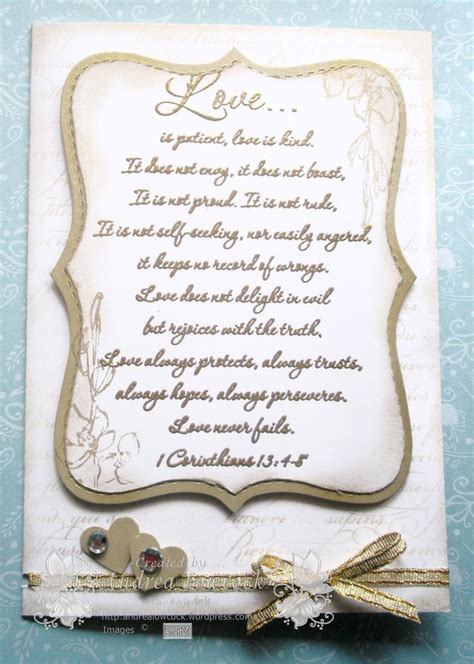 Love...
is patient, love is kind.
It does not envy, it does not boast,
It is not proud. It is not rude,
It is not self-seeking, nor easily angered,
it keeps no record of wrongs.
Love does not delight in evil
but rejoices with the truth.
Love always protects, always trusts,
always hopes, always perseveres.
Love never fails.
1 Corinthians 13:4-8
Created by ...
Andrea Lowcock
http:andrealowcock.wordpress.com
Images ©